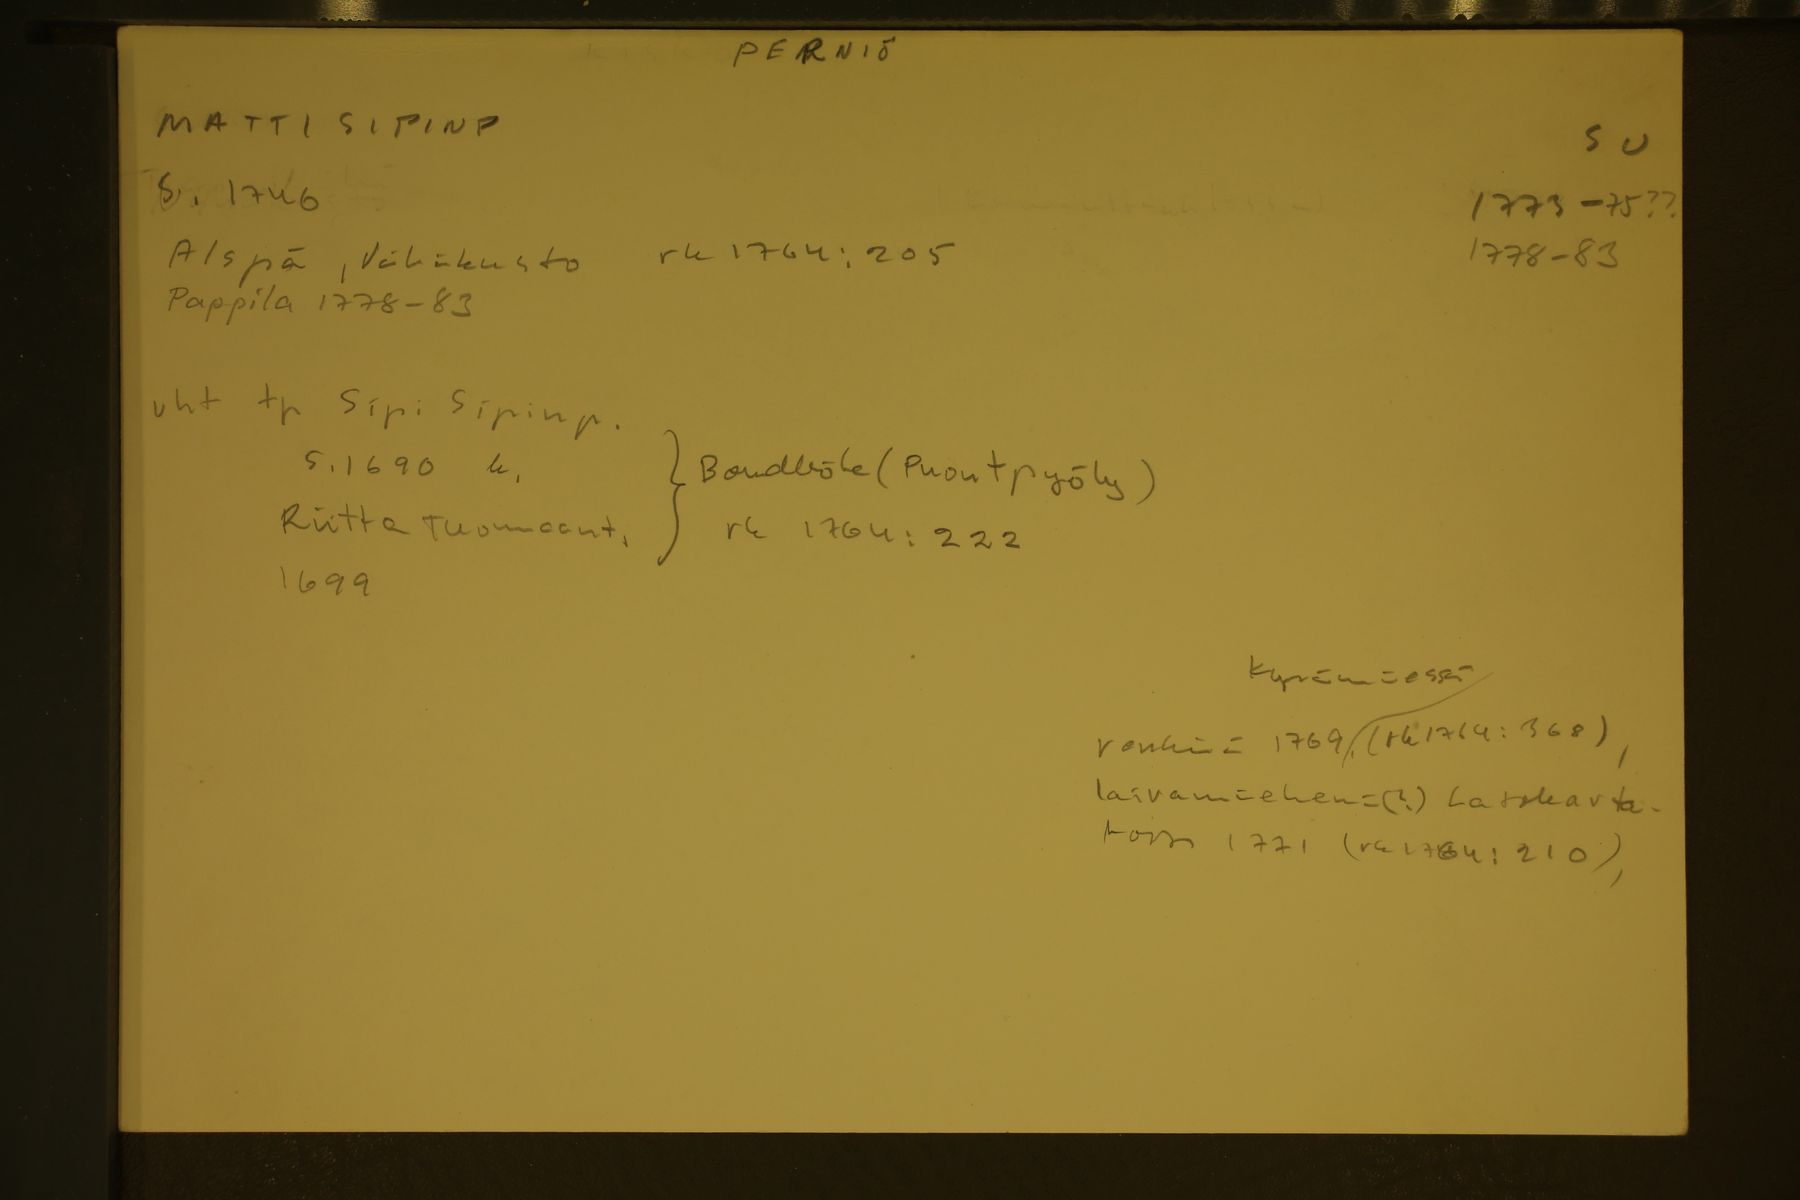 PERNIÖ
MATTI SIPINP
SU
S. 1746
1773-75??
Alspå, Vähäkusto rk 1764:205
1778-83
Pappila 1778-83
vht tp Sipi Sipinp.
s.1690 k.
Riitta Tuomaant.
1699
} Bondböle (Puontpyöly)
rk 1764:222
Kyrämäessä
renkinä 1769, (rk 1764:368),
laivamiehenä(?) Latokarta-
nossa 1771 (rk 1764:210),